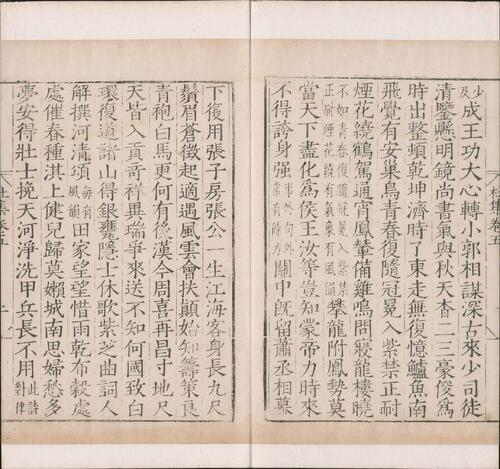 少及成王功大心轉小郭相謀深古來少司徒
清鑒懸明鏡尚書氣與秋天杳二三豪俊爲
時出整頓乾坤濟時了東走無復憶鱸魚南
飛覺有安巢鳥青春復隨冠冕入紫禁正耐
煙花繞鶴駕通宵鳳輦備雞鳴問寢龍樓曉
不如青春復隨冠冕入紫禁正耐煙花繞有氣象有風韻攀龍附鳳勢莫
當天下盡化爲侯王汝等豈知蒙帝力時來
不得誇身强關中旣留蕭丞相幕
杜集卷五
下復用張子房張公一生江海客身長九尺
鬚眉蒼徵起適遇風雲會扶顛始知籌策良
青袍白馬更何有後漢今周喜再昌寸地尺
天皆入貢奇祥異瑞爭來送不知何國致白
環復道諸山得銀甕隱士休歌紫芝曲詞人
解撰河清頌每有風韻田家望望惜雨乾布穀處
處催春種淇上健兒歸莫嬾城南思婦愁多
夢安得壯士挽天河淨洗甲兵長不用此詩對律
杜集卷五